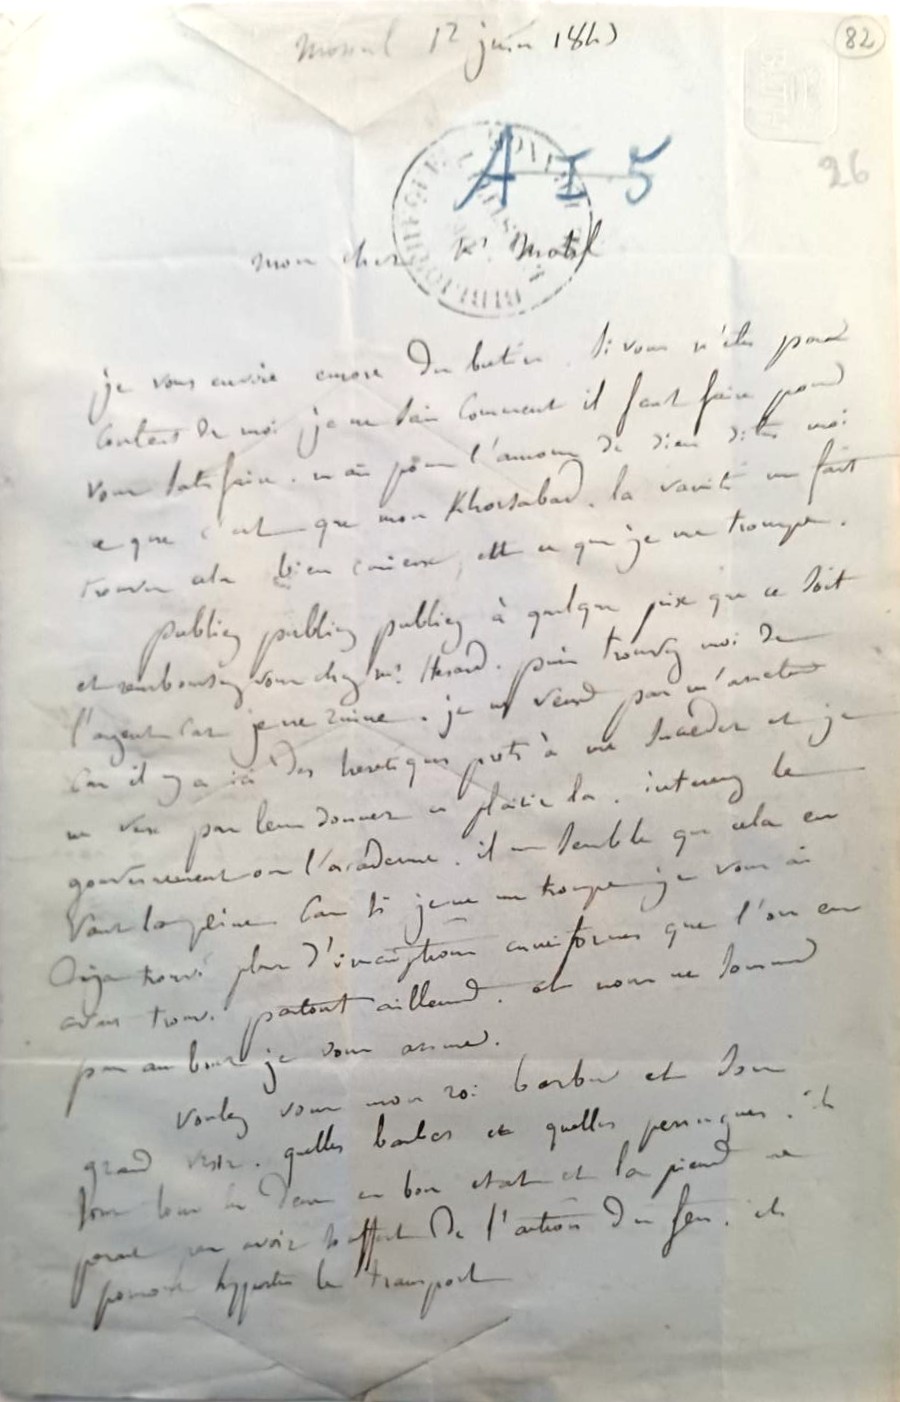 Mossul 12 juin 1843
82
A I 5
26
mon cher Mr Mohl
je vous envoie encore du butin. Si vous n'etes pas
content de moi je ne sais comment il faut faire pour
vous satisfaire. mais pour l'amour de dieu dites moi
ce que c'est que mon Khorsabad. la vanité me fait
trouver cela bien curieux, est ce que je me trompe.
publiez publiez publiez à quelque prix que ce soit
et remboursez vous chez mr. puis trouvez moi de
l'argent car je me ruine. je ne veux pas m'arreter
car il y a ici des heretiques prets à me succeder et je
ne veux pas leur donner ce plaisir la. interessez le
gouvernement ou l'academie. il me semble que cela en
vaut la peine car si je ne me trompe je vous ai
deja trouvé plus d'inscriptions cuneiformes que l'on en
avait trouvé partout ailleurs. et nous ne sommes
pas au bout je vous assure.
voulez vous mon roi barbu et son
grand visir. quelles barbes et quelles perruques. ils
sont tous les deux en bon etat et la pierre ne
parait pas avoir souffert de l'action du feu. ils
pourront supporter le transport